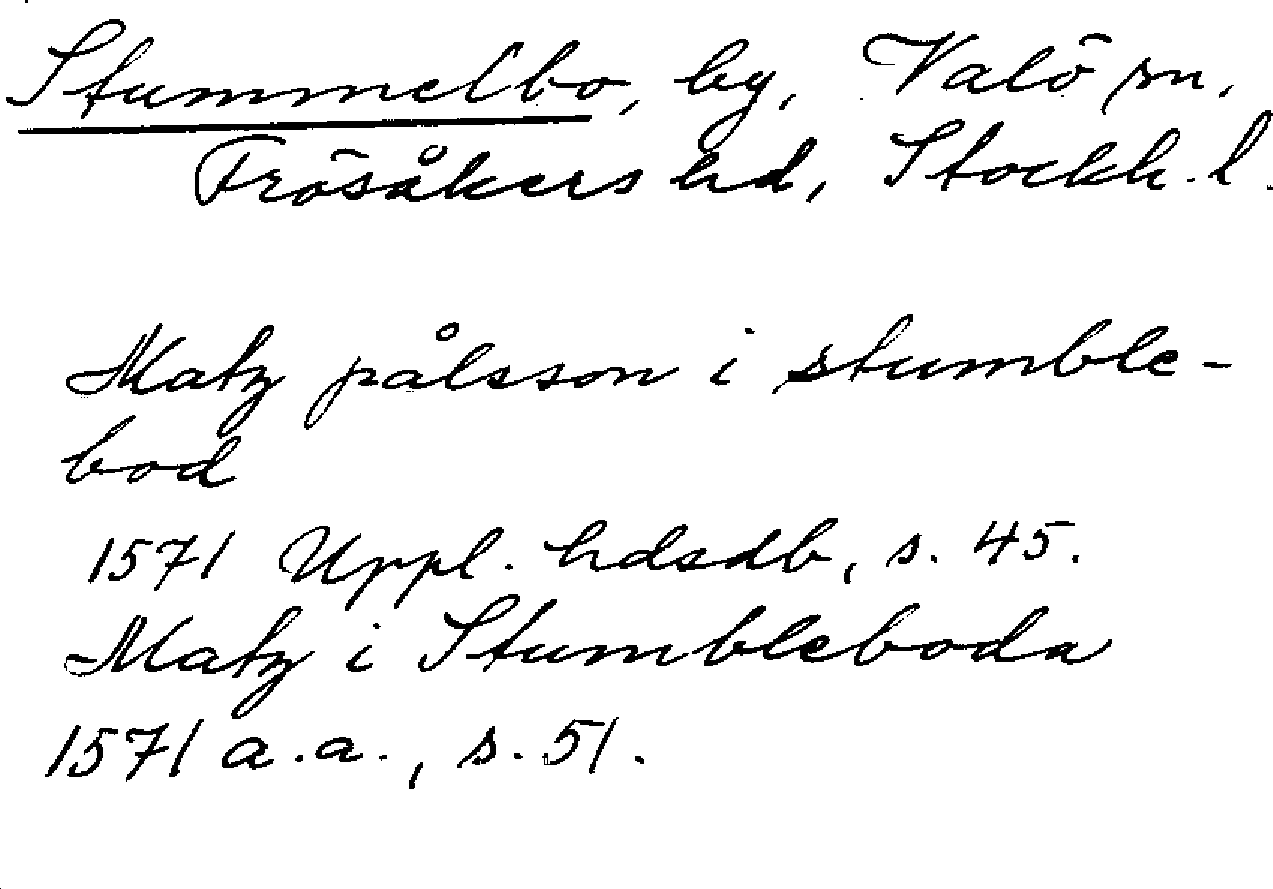 Stummelbo, by, Valö sn,
Frösåkers hd, Stockh. l.
Matz pålsson i stumble-
bod
1571 Uppl. hdsdb, s. 45.
Matz i Stumbleboda
1571 a.a., s. 51.